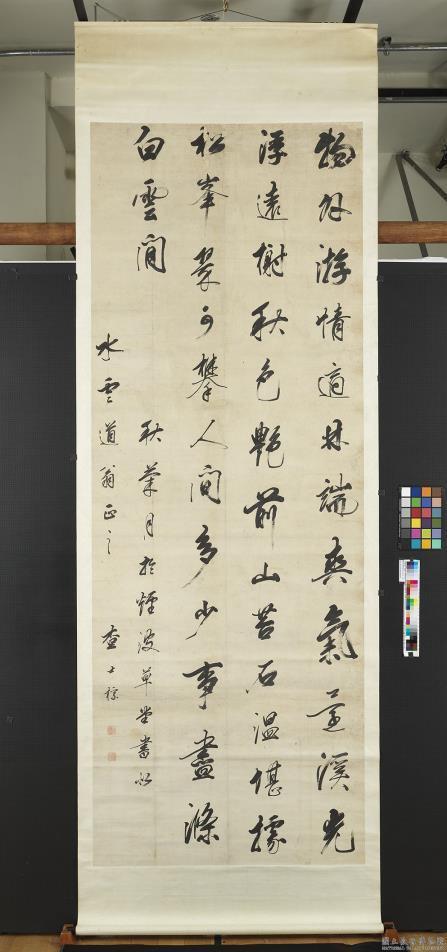 物外游情適林端爽氣還溪光
浮遠樹秋色艷前山苔石溫堪據
松峯翠可攀人間多少事盡滌
白雲間
秋葉月於煙波草堂書似
水雲道翁正之
查士標